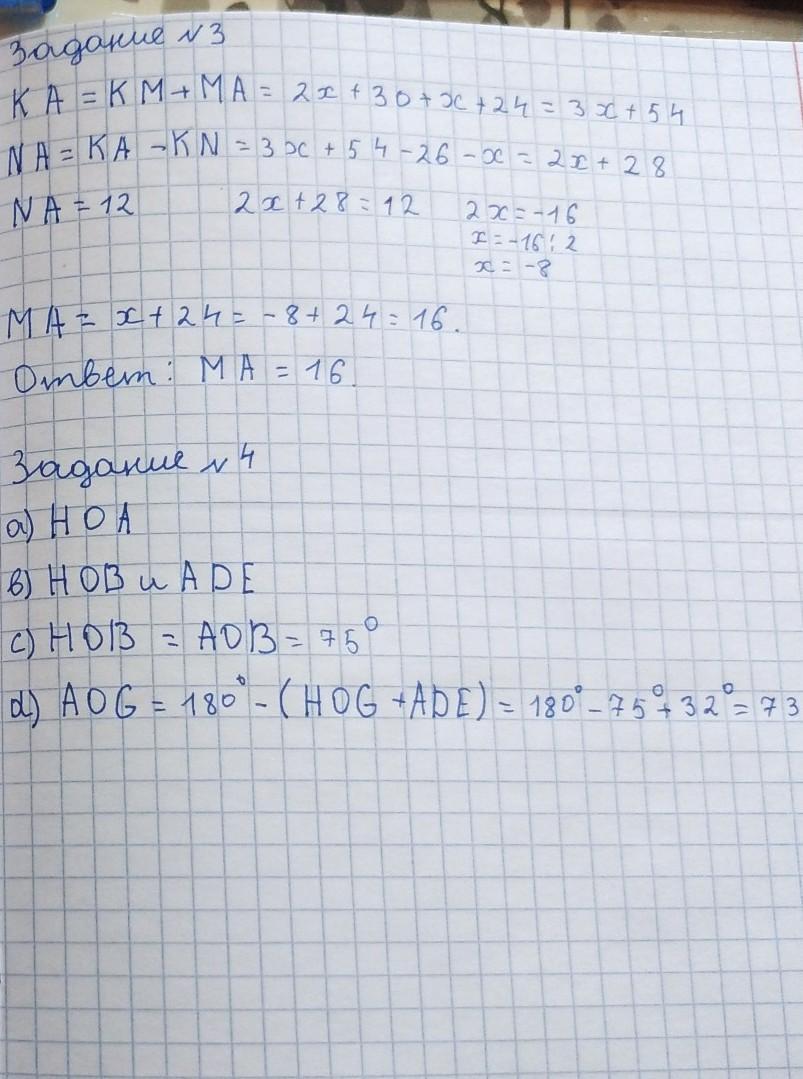 Задание №3
KA = KM + MA = 2x + 30 + x + 24 = 3x + 54
NA = KA - KN = 3x + 54 - 26 - x = 2x + 28
NA = 12 2x + 28 = 12 2x = -16
x = -16 : 2
x = -8
MA = x + 24 = -8 + 24 = 16.
Ответ: MA = 16.
Задание №4
a) HOA
в) HOB и ADE
c) HOB = AOB = 75°
d) AOG = 180° - (HOG + ADE) = 180° - 75° + 32° = 73